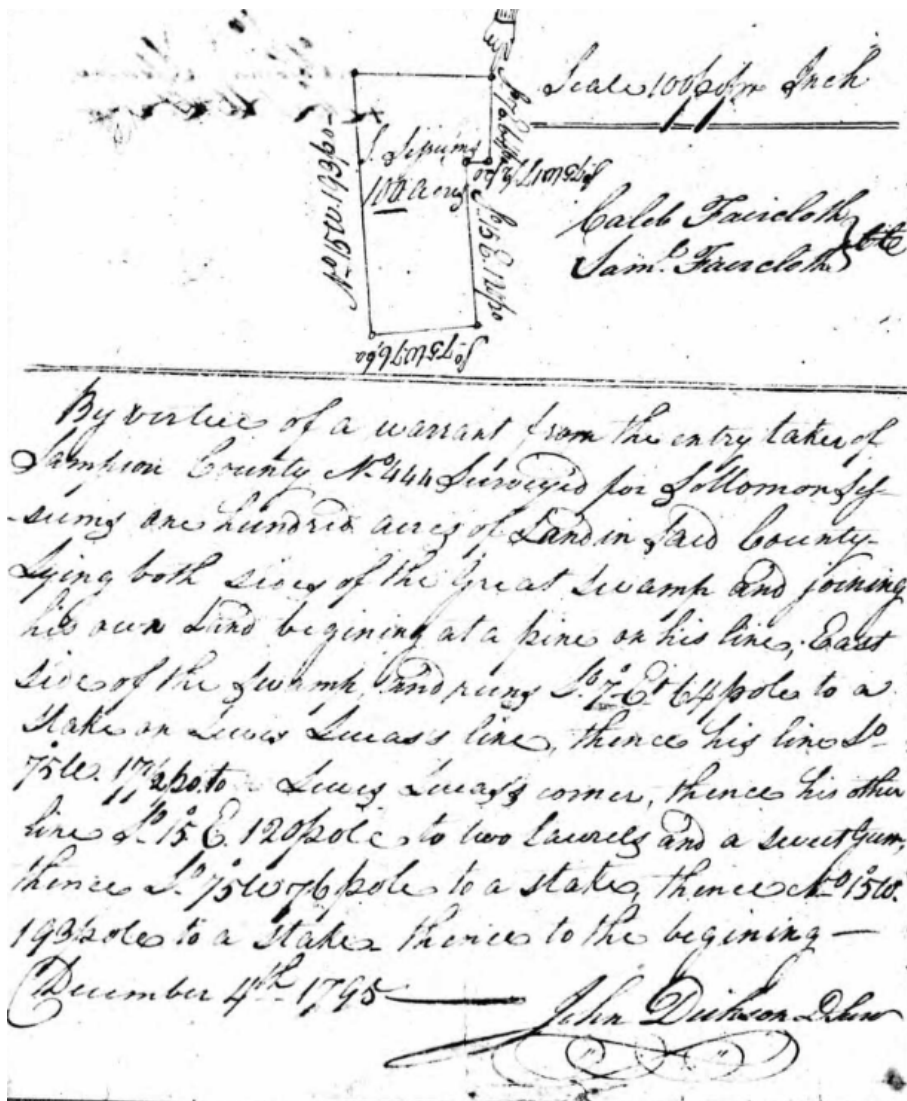 Scale 100 po pr Inch
S. Sesums
100 Acres
So 7 E 64 po
So 75 W 17 1/2 po
So 15 E 120 po
So 75 W 76 po
No 15 W 193 po
Caleb Faircloth
Saml. Faircloth } CC
By virtue of a warrant from the entry taker of
Sampson County No. 444 Surveyed for Sollomon Ses-
-sums one hundred acres of Land in said County
Lying both sides of the Great Swamp and joining
his own Land begining at a pine on his line, East
side of the Swamp, and runs So. 7 Et. 64 pole to a
Stake on Lewis Lucas's line, thence his line So.
75 W. 17 1/2 po. to Lewis Lucas's corner, thence his other
line So. 15 E. 120 pole to two Laurels and a sweet Gum,
thence So. 75 W 76 pole to a stake, thence No. 15 W.
193 pole to a Stake thence to the begining —
December 4th. 1795 —
John Dickson D Sur